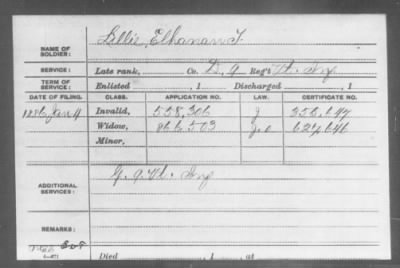 NAME OF SOLDIER: Lillie, Elhanan T.
SERVICE: Late rank, Co. D, 9 Reg't Vt. Inf
TERM OF SERVICE: Enlisted , 1 Discharged , 1
DATE OF FILING. CLASS. APPLICATION NO. LAW. CERTIFICATE NO.
1886 Jan 4 Invalid, 558,306 J 353,647
Widow, 866,503 627,646
Minor,
ADDITIONAL SERVICES: G. 9. Vt. Inf
REMARKS:
Died , 1 , at